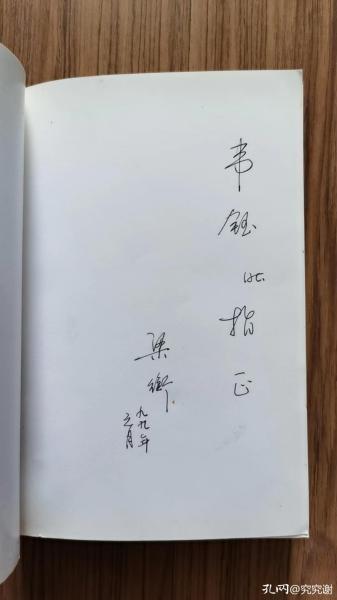 韦钰指正
梁衡
九九年
月
孔网@究究谢